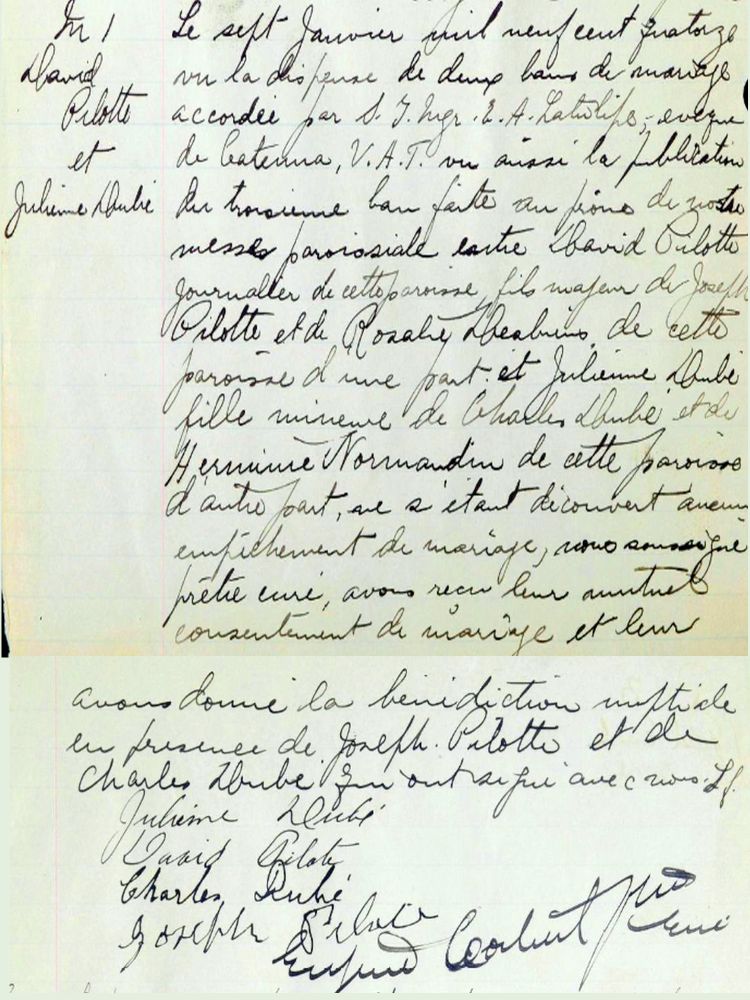 M 1
David
Pilotte
et
Julienne Dubé
Le sept Janvier mil neuf cent quatorze
vu la dispense de deux bans de mariage
accordée par S. G. Mgr. E. A. Latulipe, évêque
de Catenna, V. A. T. vu aussi la publication
du troisième ban faite au prône de notre
messe paroissiale entre David Pilotte
journalier de cette paroisse, fils majeur de Joseph
Pilotte et de Rosalie Desbiens, de cette
paroisse d'une part. et Julienne Dubé
fille mineure de Charles Dubé et de
Herminie Normandin de cette paroisse
d'autre part, ne s'étant découvert aucun
empêchement de mariage, nous soussigné
prêtre curé, avons reçu leur mutuel
consentement de mariage et leur
avons donné la bénédiction nuptiale
en présence de Joseph. Pilotte et de
Charles Dubé qui ont signé avec nous. L. f.
Julienne Dubé
David Pilote
Charles Dubé
Joseph Pilote
Corbeil ptre
curé